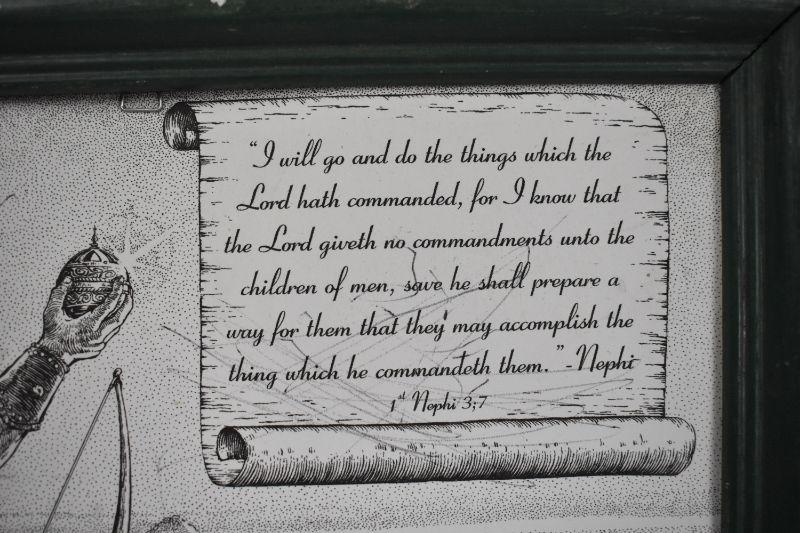 "I will go and do the things which the
Lord hath commanded, for I know that
the Lord giveth no commandments unto the
children of men, save he shall prepare a
way for them that they may accomplish the
thing which he commandeth them." - Nephi
1st Nephi 3;7